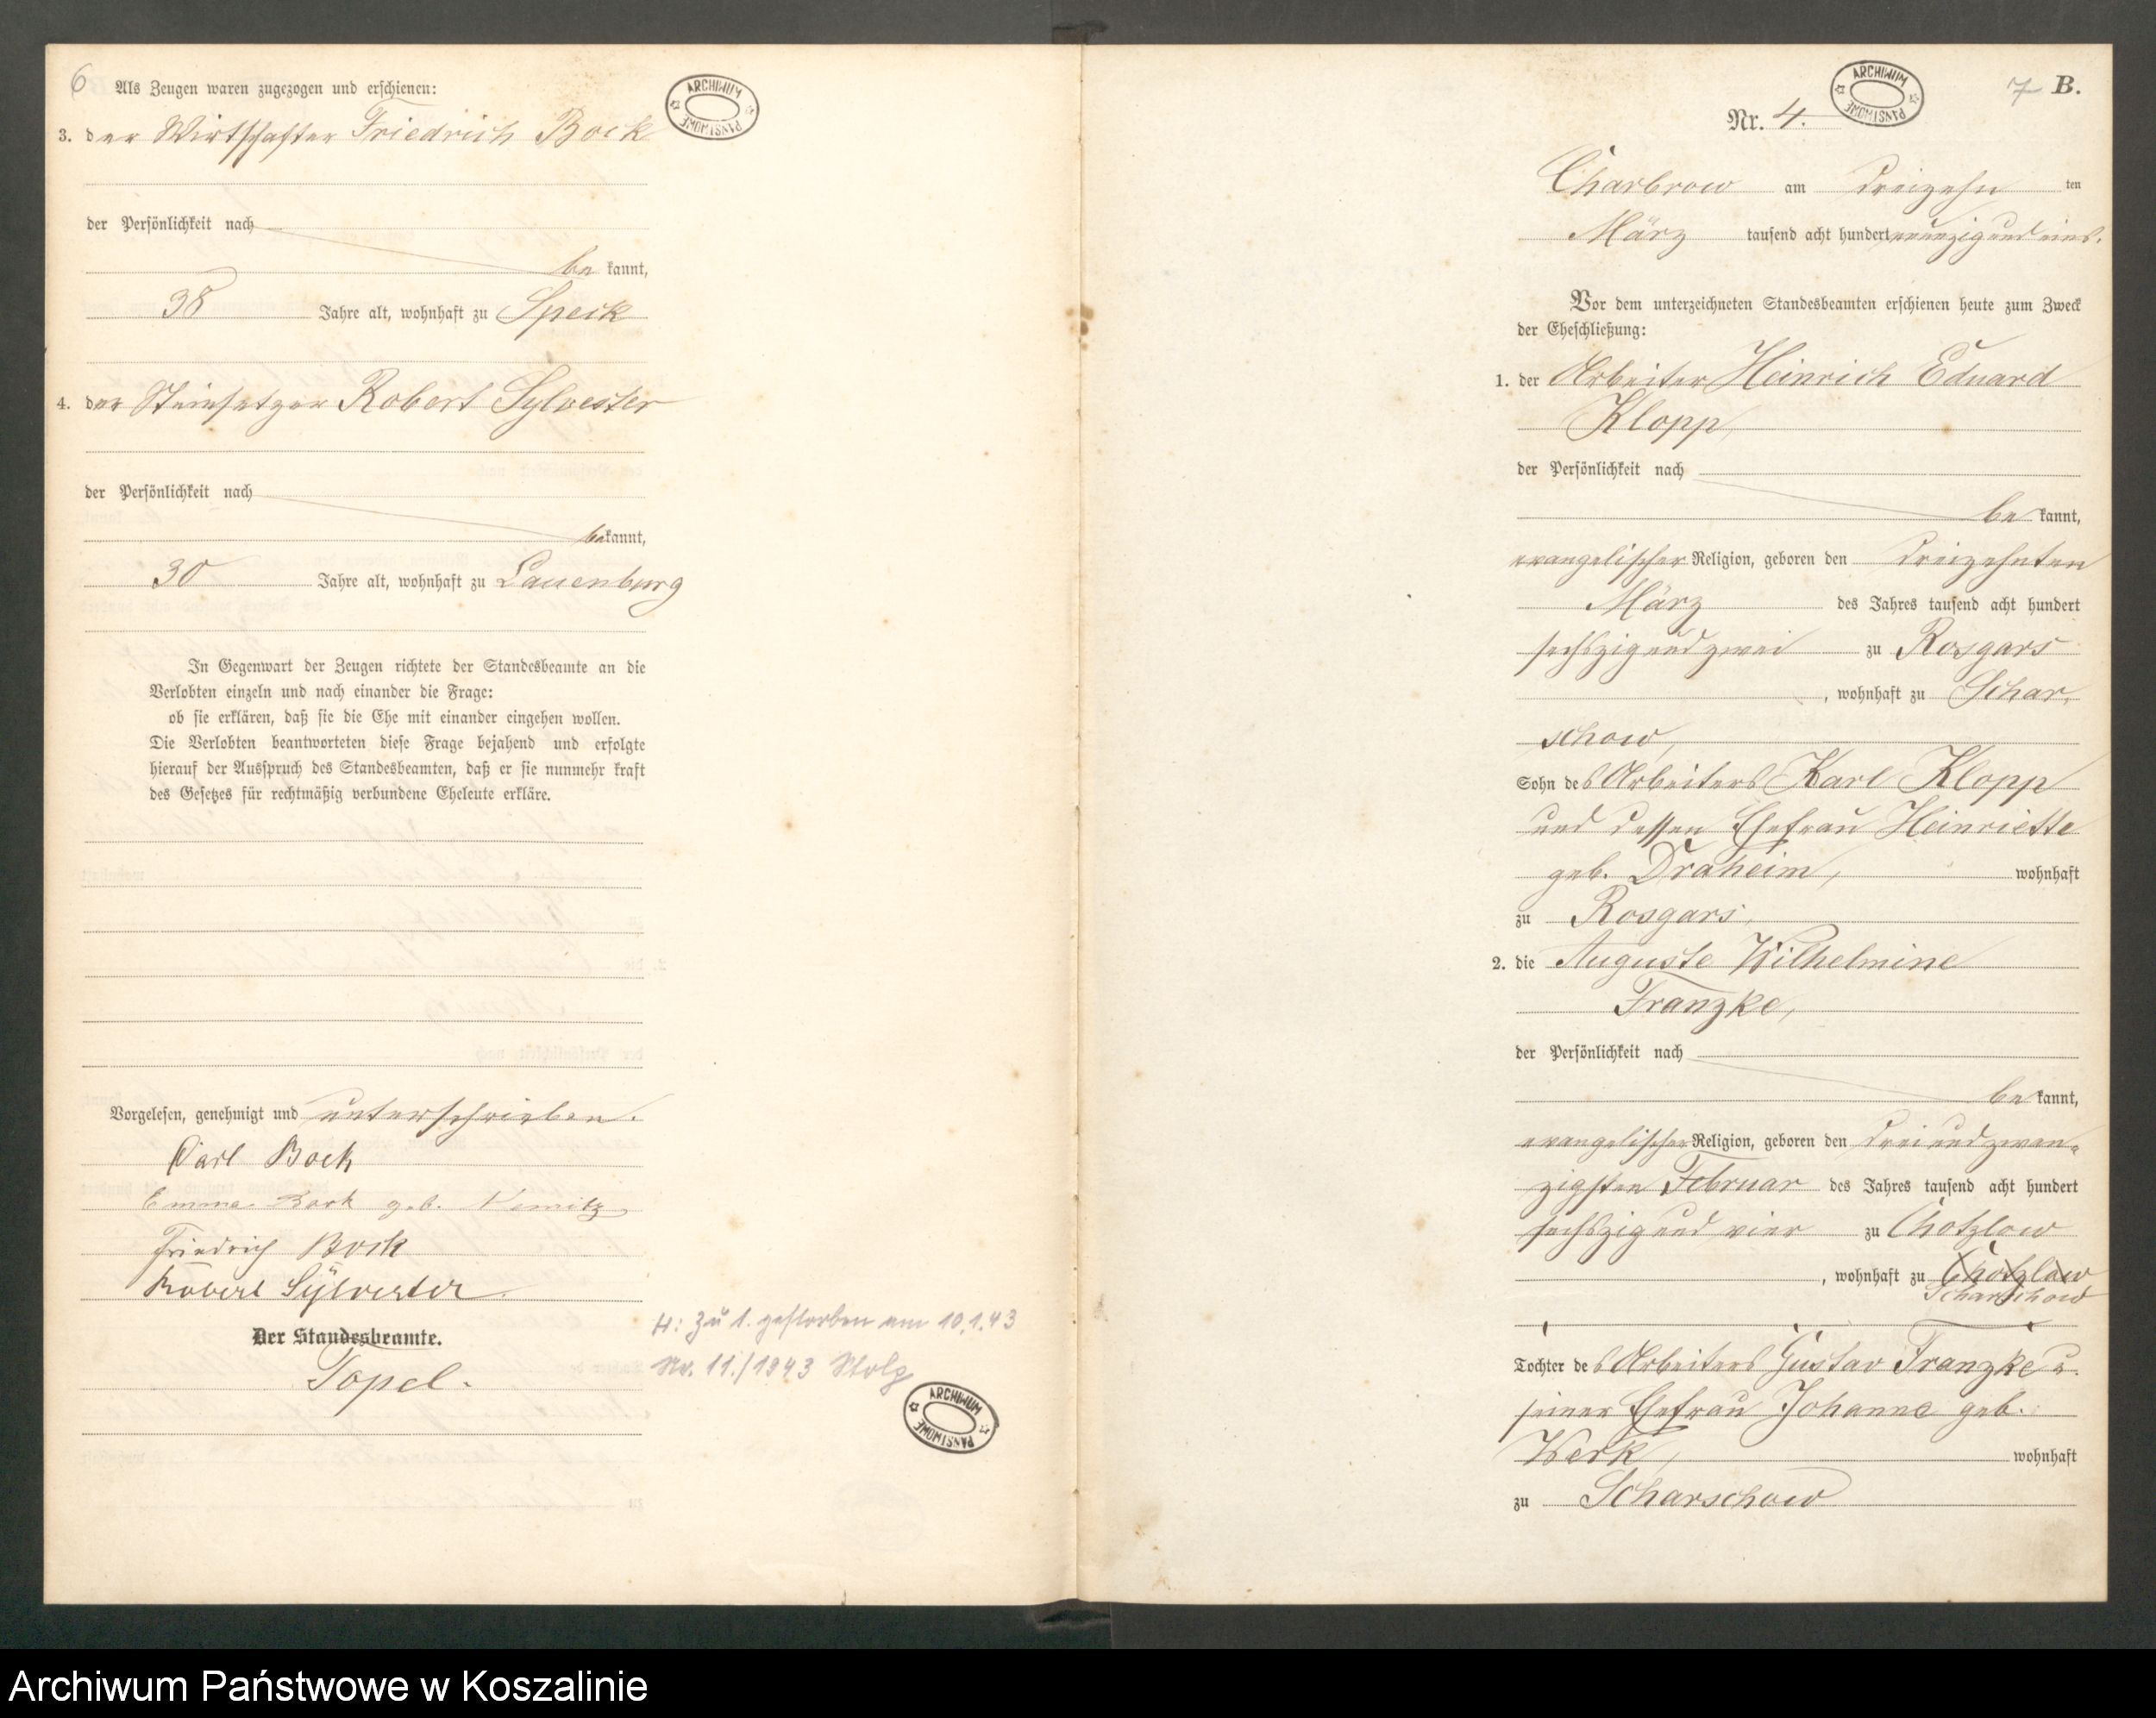 6
Als Zeugen waren zugezogen und erschienen:
3. der Wirthschafter Friedrich Bock
der Persönlichkeit nach
bekannt,
38 Jahre alt, wohnhaft zu Speck
4. der Steinsetzer Robert Sylvester
der Persönlichkeit nach
bekannt,
30 Jahre alt, wohnhaft zu Lauenburg
In Gegenwart der Zeugen richtete der Standesbeamte an die
Verlobten einzeln und nach einander die Frage:
ob sie erklären, daß sie die Ehe mit einander eingehen wollen.
Die Verlobten beantworteten diese Frage bejahend und erfolgte
hierauf der Ausspruch des Standesbeamten, daß er sie nunmehr kraft
des Gesetzes für rechtmäßig verbundene Eheleute erkläre.
Vorgelesen, genehmigt und unterschrieben.
Carl Bock
Emma Bock geb. Nemitz
Friedrich Bock
Robert Sylvester
Der Standesbeamte.
Topel.
H: Zu 1. gestorben am 10.1.43
Nr. 11./1943 Stolp
ARCHIWUM PAŃSTWOWE
ARCHIWUM PAŃSTWOWE
ARCHIWUM PAŃSTWOWE
7 B.
Nr. 4.
Charbrow am dreizehnten
März tausend acht hundert neunzig und eins.
Vor dem unterzeichneten Standesbeamten erschienen heute zum Zweck
der Eheschließung:
1. der Arbeiter Heinrich Eduard
Klopp
der Persönlichkeit nach
bekannt,
evangelischer Religion, geboren den dreizehnten
März des Jahres tausend acht hundert
sechszig und zwei zu Rosgars
, wohnhaft zu Schar-
schow,
Sohn des Arbeiters Karl Klopp
und dessen Ehefrau Heinriette
geb. Draheim, wohnhaft
zu Rosgars.
2. die Auguste Wilhelmine
Franzke,
der Persönlichkeit nach
bekannt,
evangelischer Religion, geboren den dreiundzwan-
zigsten Februar des Jahres tausend acht hundert
sechszig und vier zu Chotzlow
, wohnhaft zu Chotzlow
Scharschow
Tochter des Arbeiters Gustav Franzke u.
seiner Ehefrau Johanne geb.
Werk, wohnhaft
zu Scharschow
Archiwum Państwowe w Koszalinie